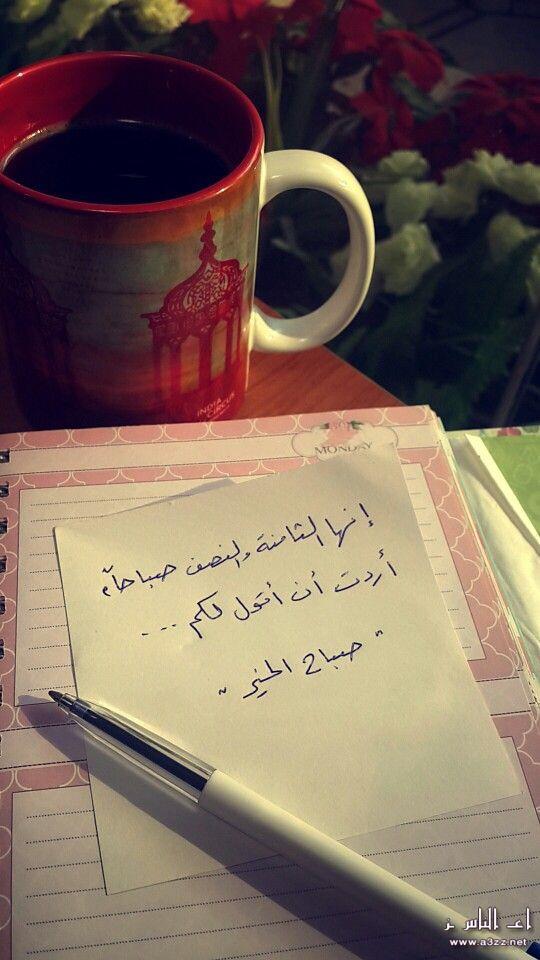 INDIA
CIRCUS
MONDAY
إنها الثامنة والنصف صباحاً،
أردت أن أقول لكم ...
" صباح الخير "
www.a3zz.net